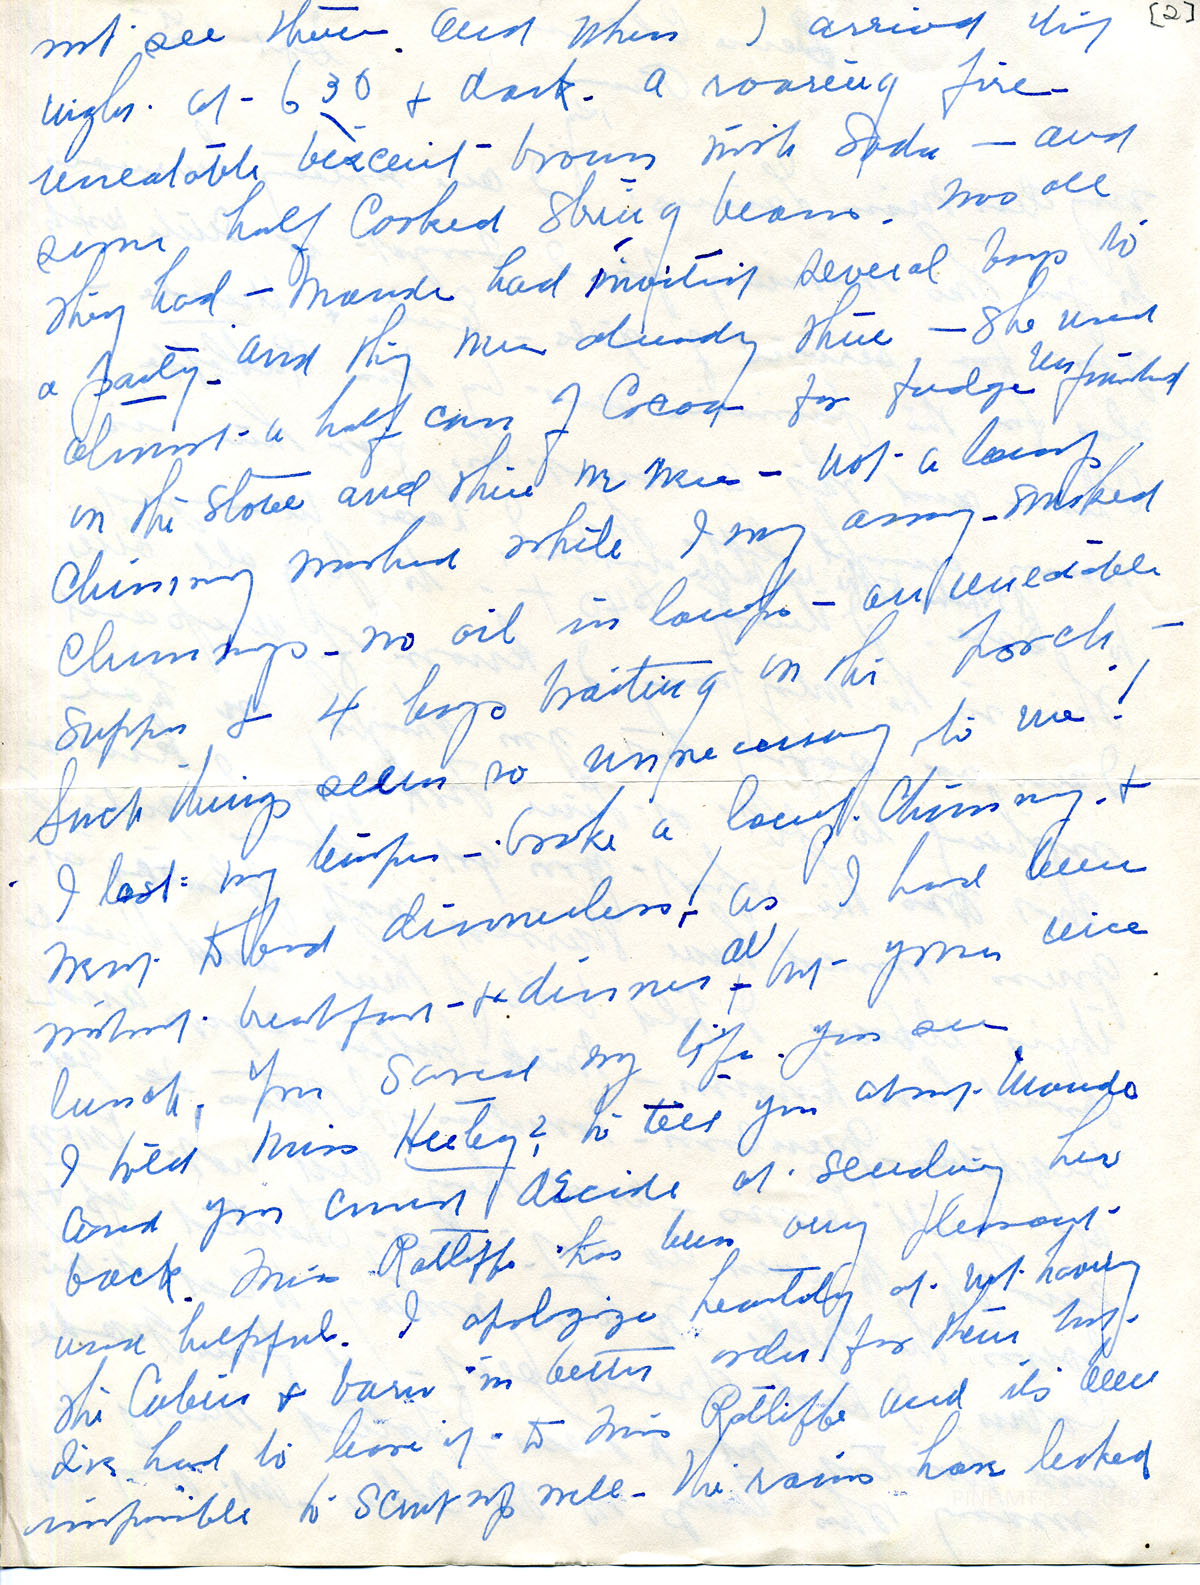 [2]
not see them. And when I arrived this
night. at - 6 30 & dark - a roaring fire -
uneatable biscuit - brown with Soda - and
some half Cooked String beans. was all
they had - Maude had invited several boys to
a party - and they were already there - She used
almost - a half can of Cocoa for fudge unfinished
on the stove and there we were - not - a lamp
Chimney washed while I was away - smoked
Chimneys - no oil in lamps - an uneatable
supper & 4 boys waiting on the porch -
Such things seem so unnecessary to me!
I lost my temper - broke a lamp. Chimney. &
went to bed dinnerless! as I had been
without. breakfast - & dinner all - but - your nice
lunch. You saved my life. You see
I told Miss Keeley? to tell you about Maude
and you must decide at. sending her
back. Miss Ratliffe has been very pleasant.
and helpful. I apologize heartily at. not having
the Cabin & barn in better order for them but.
I've had to leave it - to Miss Ratliffe and its been
impossible to Scrub up well - The rains have leaked